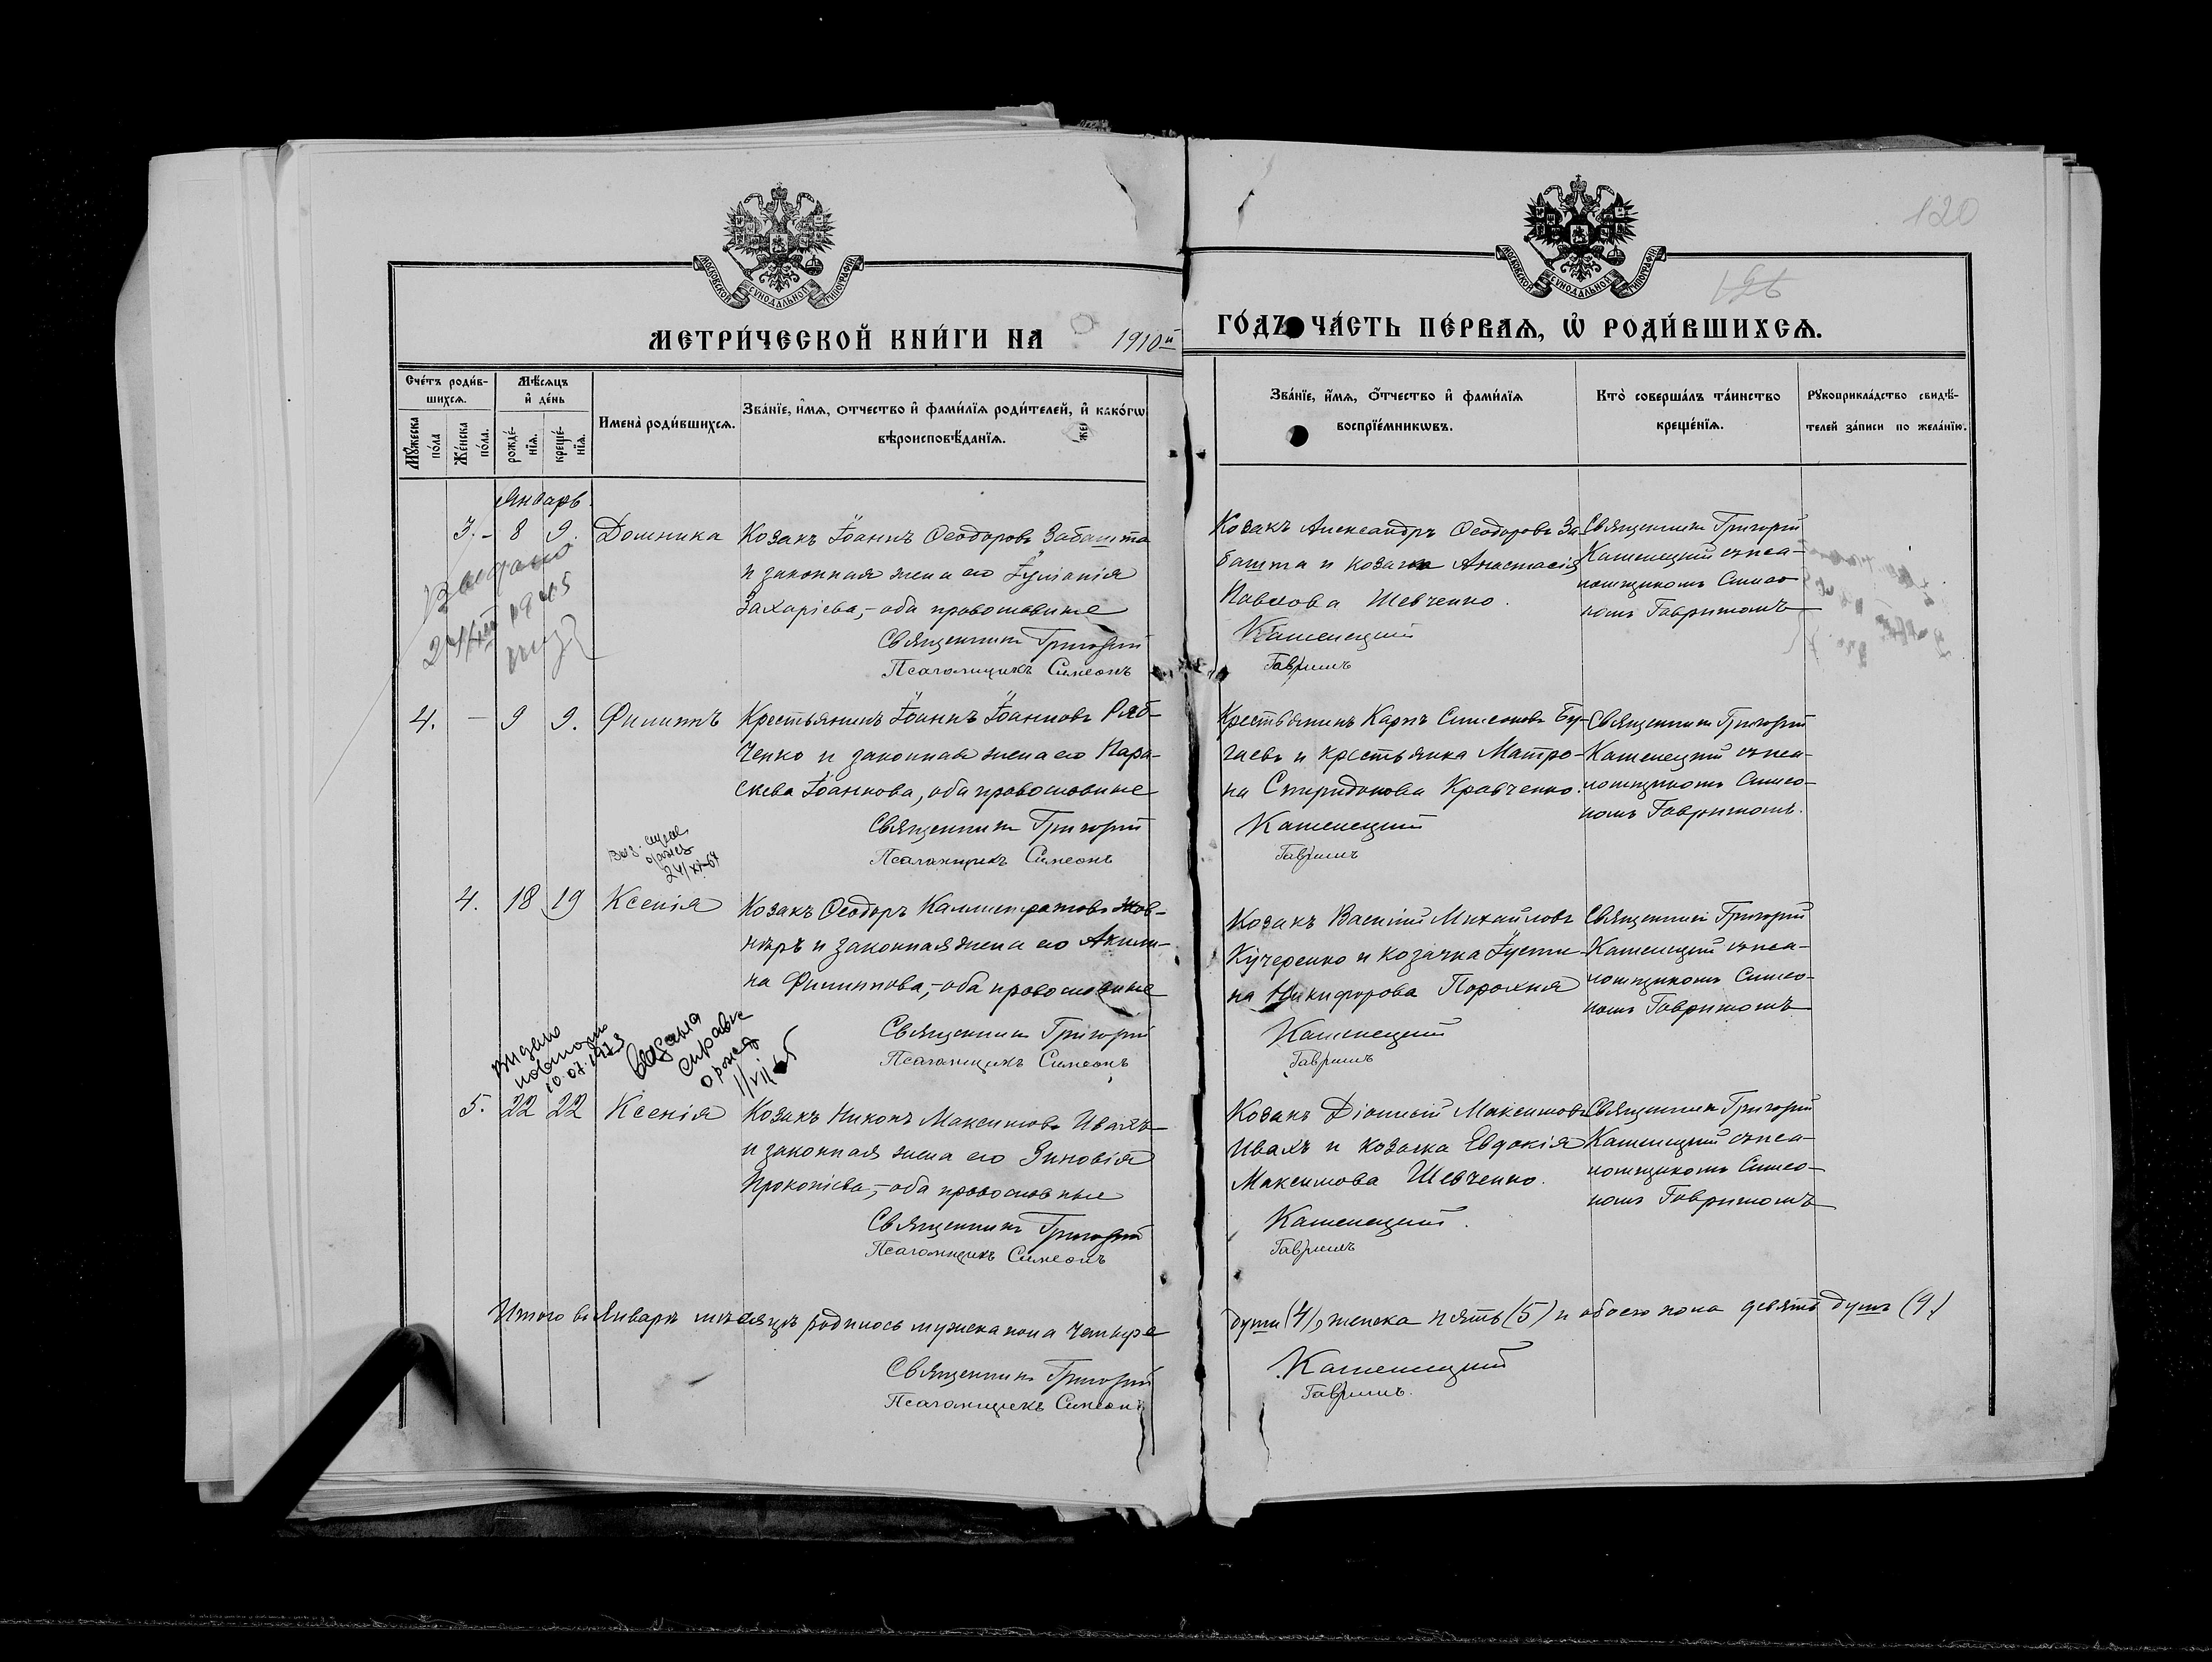 120
МОСКОВСКОЙ СУНОДАЛЬНОЙ ТИПОГРАФІИ
МОСКОВСКОЙ СУНОДАЛЬНОЙ ТИПОГРАФІИ
МЕТРИ́ЧЕСКОЙ КНИ́ГИ НА 1910й
ГО́ДЪ ЧА́СТЬ ПЕ́РВАѦ, Ѡ҆ РОДИ́ВШИХСѦ.
Сче́тъ роди́в-
шихсѧ.
Мѹ́жеска по́ла
Же́нска по́ла.
Мѣ́сѧцъ
и҆ де́нь
рожде́-нїѧ.
креще́-нїѧ.
Имена̀ роди́вшихсѧ.
Зва́нїе, и҆́мѧ, ѻ҆́тчество и҆ фами́лїѧ роди́телей, и҆ како́гѡ
вѣроисповѣ́данїѧ.
Зва́нїе, и҆́мѧ, ѻ҆́тчество и҆ фами́лїѧ
воспрїе́мникѡвъ.
Кто̀ соверша́лъ та́инство
креще́нїѧ.
Рѹкоприкла́дство свидѣ́-
телей за́писи по жела́нїю.
Январь.
3. - 8 9. Домника
Козакъ Іоаннъ Ѳеодоровъ Забашта
и законная жена его Іуліанія
Захаріева,- оба православные
Священникъ Григорій
Псаломщикъ Симеонъ
Козакъ Александръ Ѳеодоровъ За-
башта и козачка Анастасія
Павлова Шевченко.
Каменецкій
Гавришъ
Священникъ Григорій
Каменецкій съ пса-
ломщикомъ Симео-
номъ Гавришомъ
Видано
1945
4. - 9 9. Филиппъ
Крестьянинъ Іоаннъ Іоанновъ Ряб-
ченко и законная жена его Пара-
скева Іоаннова, оба православные
Священникъ Григорій
Псаломщикъ Симеонъ
Крестьянинъ Карпъ Симеоновъ Бу-
гаевъ и крестьянка Матро-
на Спиридонова Кравченко.
Каменецкій
Гавришъ
Священникъ Григорій
Каменецкій съ пса-
ломщикомъ Симео-
номъ Гавришомъ.
24/XI-64
4. 18 19 Ксенія
Козакъ Ѳеодоръ Каллистратовъ Жов-
нѣръ и законная жена его Акили-
на Филиппова,- оба православные
Священникъ Григорій
Псаломщикъ Симеонъ
Козакъ Василій Михайловъ
Кучеренко и козачка Іусти-
на Никифорова Порохня
Каменецкій
Гавришъ
Священникъ Григорій
Каменецкій съ пса-
ломщикомъ Симео-
номъ Гавришомъ
видано
повторно
10.07.1973
видана
справка
о рожд
11/VII 65
5. 22 22 Ксенія
Козакъ Никонъ Максимовъ Ивахъ
и законная жена его Зиновія
Прокопіева,- оба православные
Священникъ Григорій
Псаломщикъ Симеонъ
Козакъ Діонисій Максимовъ
Ивахъ и козачка Евдокія
Максимова Шевченко.
Каменецкій.
Гавришъ
Священникъ Григорій
Каменецкій съ пса-
ломщикомъ Симео-
номъ Гавришомъ
Итого въ Январѣ мѣсяцѣ родилось мужеска пола четыре
души (4), женска пять (5) и обоего пола девять душъ (9.)
Священникъ Григорій
Псаломщикъ Симеонъ
Каменецкій
Гавришъ.